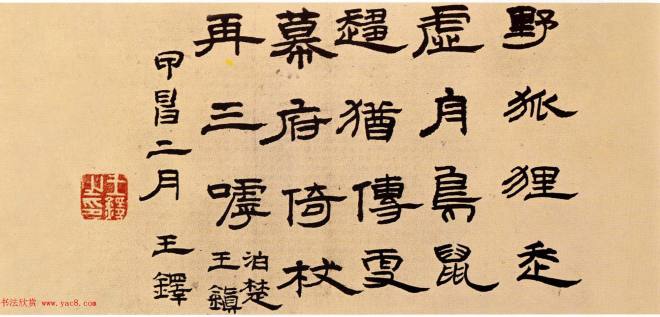 野狐狸走
虛鳥鼠
猶傳更
幕府倚杖
再三嘑
泊楚
王鎮
甲二月王鐸
王鐸之印
书法欣赏 www.yac8.com